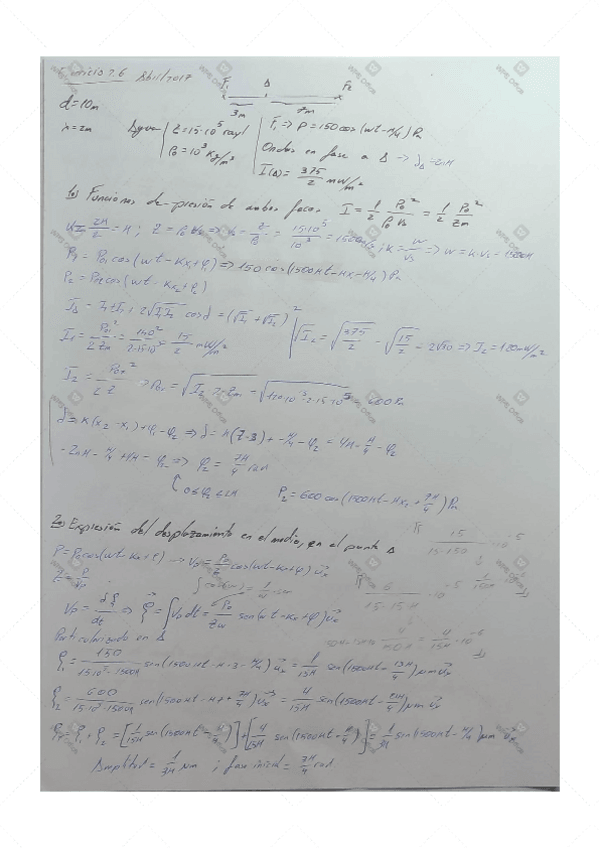 Ejercicio 2.6 Abril/2017
F₁ Δ F₂
3m 7m
d = 10m
λ = 2m Agua Z = 15·10⁵ rayl
ρ₀ = 10³ kg/m³
F₁ => P = 150 cos(wt - π/4) Pa
Ondas en fase a Δ -> δΔ = 2nπ
I(Δ) = 375/2 mW/m²
1o) Funciones de presión de ambos focos I = 1/2 P₀²/ρ₀ v₀ = 1/2 P₀²/Zm
K = 2π/2 = π ; Z = ρ₀ v₀ => v₀ = Z/ρ₀ = 15·10⁵/10³ = 1500 m/s ; K = w/v₀ => w = K·v₀ = 1500π
P₁ = P₀₁ cos(wt - Kx₁ + φ₁) => 150 cos(1500πt - πx - π/4) Pa
P₂ = P₀₂ cos(wt - Kx₂ + φ₂)
IΔ = I₁ + I₂ + 2√I₁I₂ cos δ = (√I₁ + √I₂)²
I₁ = P₀₁²/2Zm = 150²/2·15·10⁵ = 15/2 mW/m²
√I₂ = √375/2 - √15/2 = 2√30 => I₂ = 120 mW/m²
I₂ = P₀₂²/2·Z => P₀₂ = √I₂·2·Zm = √120·10⁻³·2·15·10⁵ = 600 Pa
δ = K(x₂ - x₁) + φ₁ - φ₂ => δ = π(7-3) + -π/4 - φ₂ = 4π - π/4 - φ₂
-2nπ - π/4 + 4π = φ₂ => φ₂ = 7π/4 rad
0 ≤ φ₂ ≤ 2π P₂ = 600 cos(1500πt - πx₂ + 7π/4) Pa
2o) Expresión del desplazamiento en el medio, en el punto Δ
P = P₀ cos(wt - Kx + φ) -> Vp = P₀/Z cos(wt - Kx + φ) u⃗x
Z = P/Vp
Vp = dξ/dt => ξ = ∫Vp dt = P₀/Zw sen(wt - Kx + φ) u⃗x
Particularizado en Δ
ξ₁ = 150/15·10⁵·1500π sen(1500πt - π·3 - π/4) u⃗x = 1/15π sen(1500πt - 13π/4) μm u⃗x
ξ₂ = 600/15·10⁵·1500π sen(1500πt - π·7 + 7π/4) u⃗x = 4/15π sen(1500πt - 21π/4) μm u⃗x
ξT = ξ₁ + ξ₂ = 1/3π sen(1500πt - π/4) μm u⃗x
Amplitud = 1/3π μm ; fase inicial = 7π/4 rad